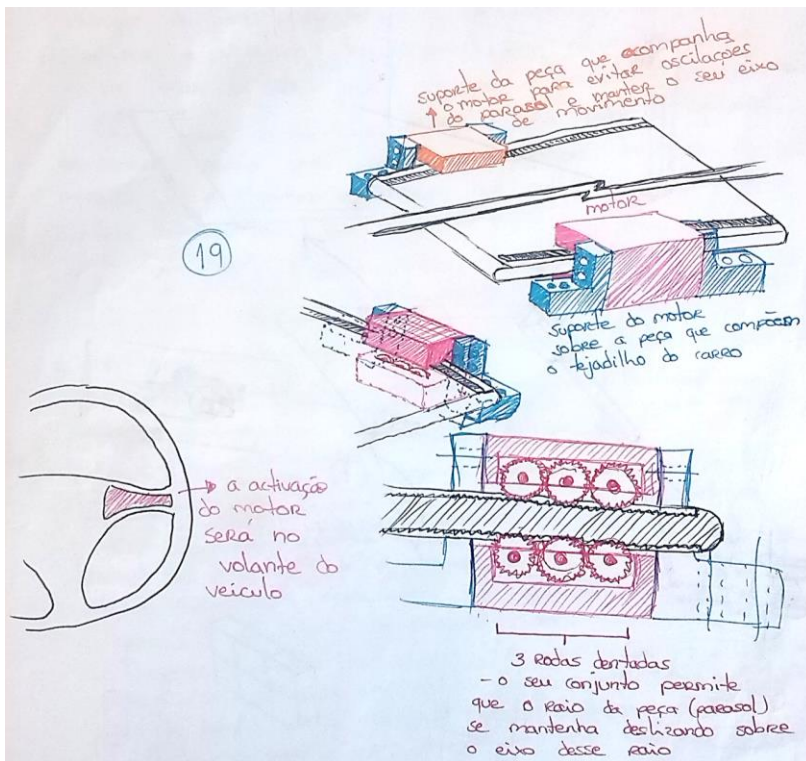 suporte da peça que acompanha
o motor para evitar oscilações
do parasol e manter o seu eixo
de movimento
motor
19
suporte do motor
sobre a peça que compõem
o tejadilho do carro
a activação
do motor
será no
volante do
veículo
3 rodas dentadas
- o seu conjunto permite
que o raio da peça (parasol)
se mantenha deslizando sobre
o eixo desse raio